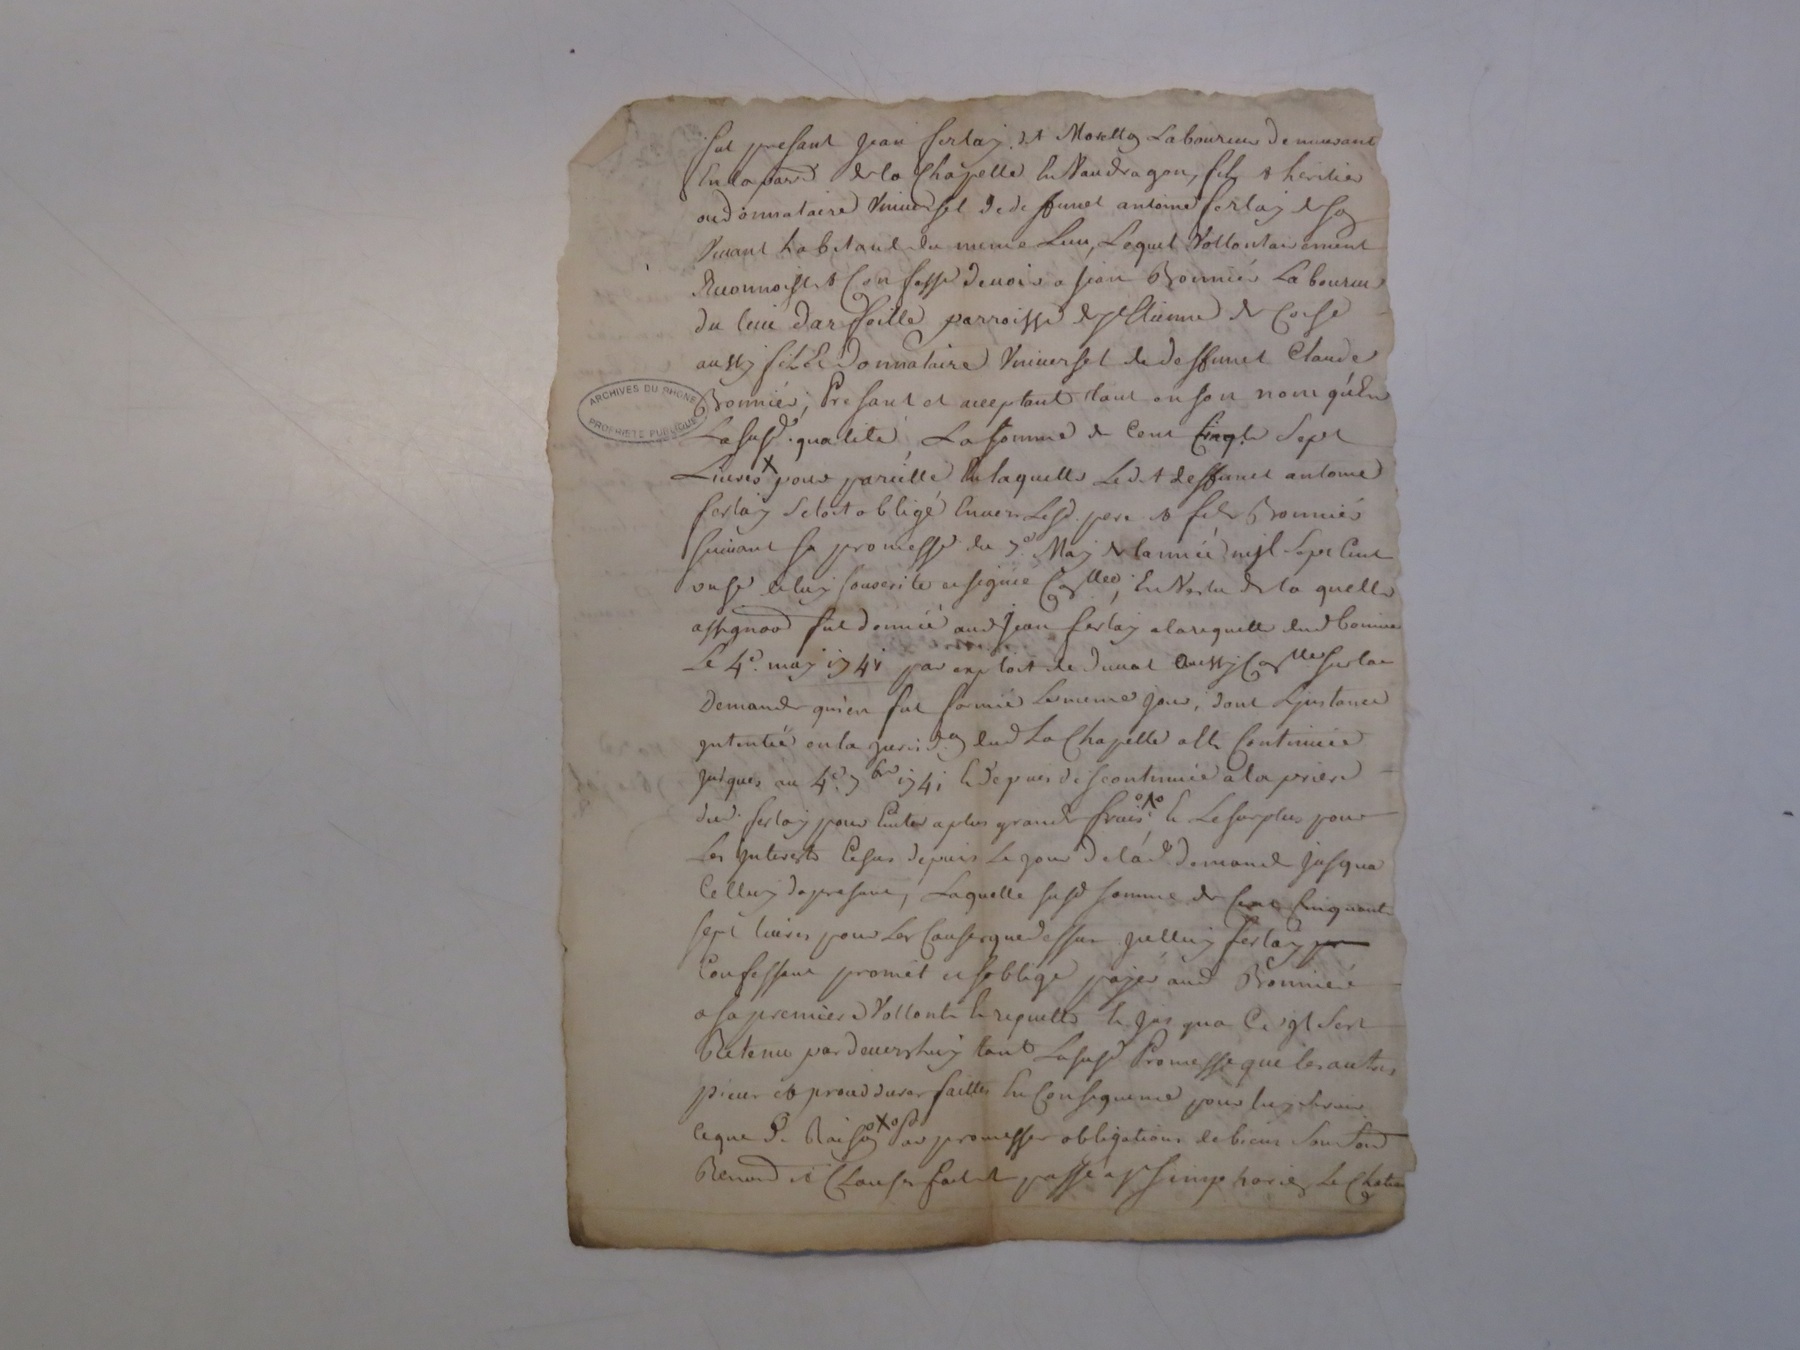 fut presant jean ferlay dit Morellon Laboureur demeurant
En la parr.e de la Chapelle En Vaudragon, fils & heritier
ou donnataire Universel de deffunct antoine ferlay de son
Vivant habitant du meme Lieu, Lequel Vollontairement
Reconnoist & Confesse devoir a jean Bonnier Laboureur
du lieu parroisse de st Etienne de Coise
aussy fils & Donnataire Universel de deffunct Claude
Bonnier, Presant et acceptant tant en son nom qu'En
La susd. qualité, La somme de Cent Cinq.te Sept
Livres pour pareille En laquelle Led.t deffunct antoine
ferlay setoit obligé Envers Lesd. pere & fils Bonnier
suivant sa promesse du May de lannée mil Sept Cent
onse de luy souscrite et signée En Vertu de la quelle
assignaon fut donnée aud jean ferlay a la requette dud bonnier
Le 4e. may 1741 par exploit de aussy sur la
Demande qu'en fut formée Le meme jour, dont Linstance
intentée en la jurisd.on dud La Chapelle a Eté Continuée
jusques au 4e. 7bre 1741 & depuis discontinuée a la priere
dud. ferlay pour Eviter a plus grands frais, & Le surplus pour
Les interests Ceçus depuis Le jour de la d. demande jusqua
Celluy dapresant, Laquelle susd somme de Cent Cinquante
sept livres pour Les Causes que dessus jcelluy ferlay
Confessant promet et soblige payer aud Bonnier
a sa premiere Vollonté & requette & jusqua Ce
Retenu par devers luy tant La susd Promesse que les autres
pieces & proceddures faittes En Consequence pour luy servir
ce que de Raison par promesses obligations de biens
Renond & Clauses fait & passé a st simphorien Le Chateau
ARCHIVES DU RHONE
PROPRIETE PUBLIQUE